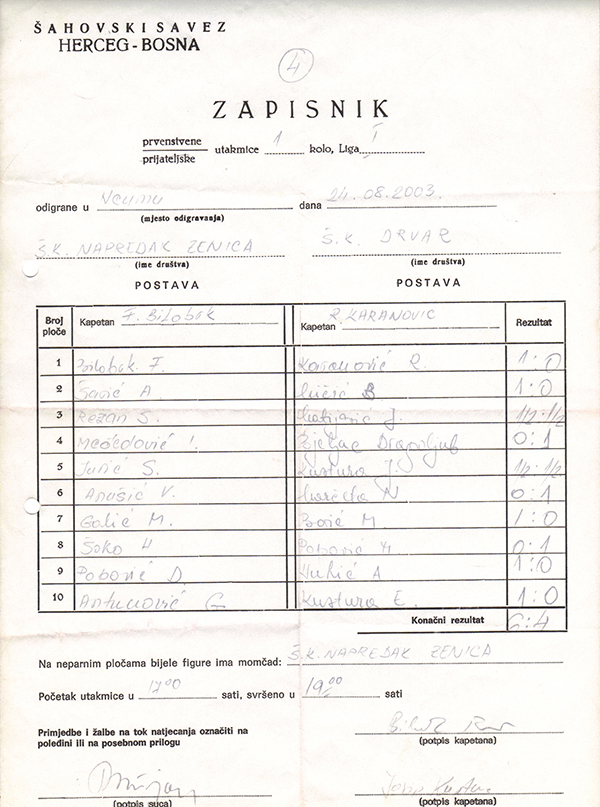 ŠAHOVSKI SAVEZ
HERCEG-BOSNA
4
ZAPISNIK
prvenstvene
prijateljske
utakmice 1 kolo, Liga I
odigrane u dana 24.08.2003.
(mjesto odigravanja)
Š.K. NAPREDAK ZENICA Š.K. DRVAR
(ime društva) (ime društva)
POSTAVA POSTAVA
Broj ploče Kapetan F. Bilobrk Kapetan R. KARANOVIĆ Rezultat
1 Bilobrk F. Karanović R. 1:0
2 Savić A. B 1:0
3 Režan S. J. 1/2:1/2
4 Bjeljac Dragoljub 0:1
5 Jurić S. Kustura J. 1/2:1/2
6 Anušić V. N 0:1
7 Galić M. Bajić M. 1:0
8 Šoko H 0:1
9 D. A 1:0
10 Antunović G Kustura E. 1:0
Konačni rezultat 6:4
Na neparnim pločama bijele figure ima momčad: Š.K. NAPREDAK ZENICA
Početak utakmice u 17 00 sati, svršeno u 19 00 sati
Primjedbe i žalbe na tok natjecanja označiti na
poleđini ili na posebnom prilogu
(potpis kapetana)
(potpis suca) (potpis kapetana)